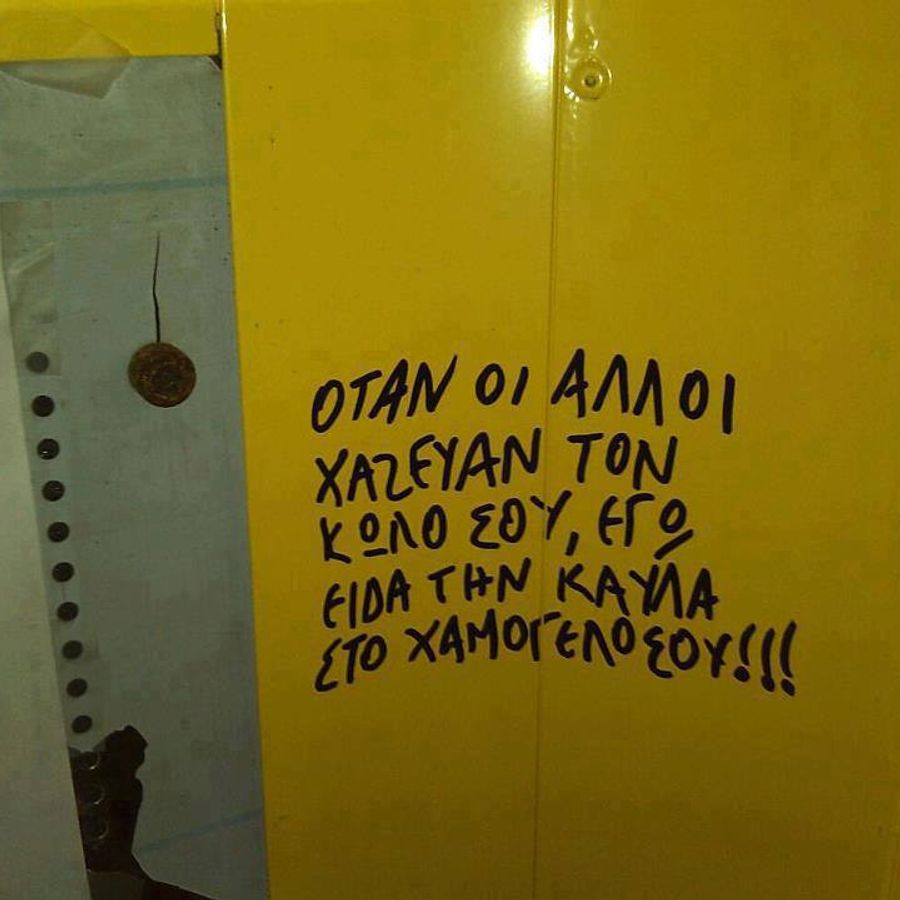 ΟΤΑΝ ΟΙ ΑΛΛΟΙ
ΧΑΖΕΥΑΝ ΤΟΝ
ΚΩΛΟ ΣΟΥ, ΕΓΩ
ΕΙΔΑ ΤΗΝ ΚΑΥΛΑ
ΣΤΟ ΧΑΜΟΓΕΛΟ ΣΟΥ!!!